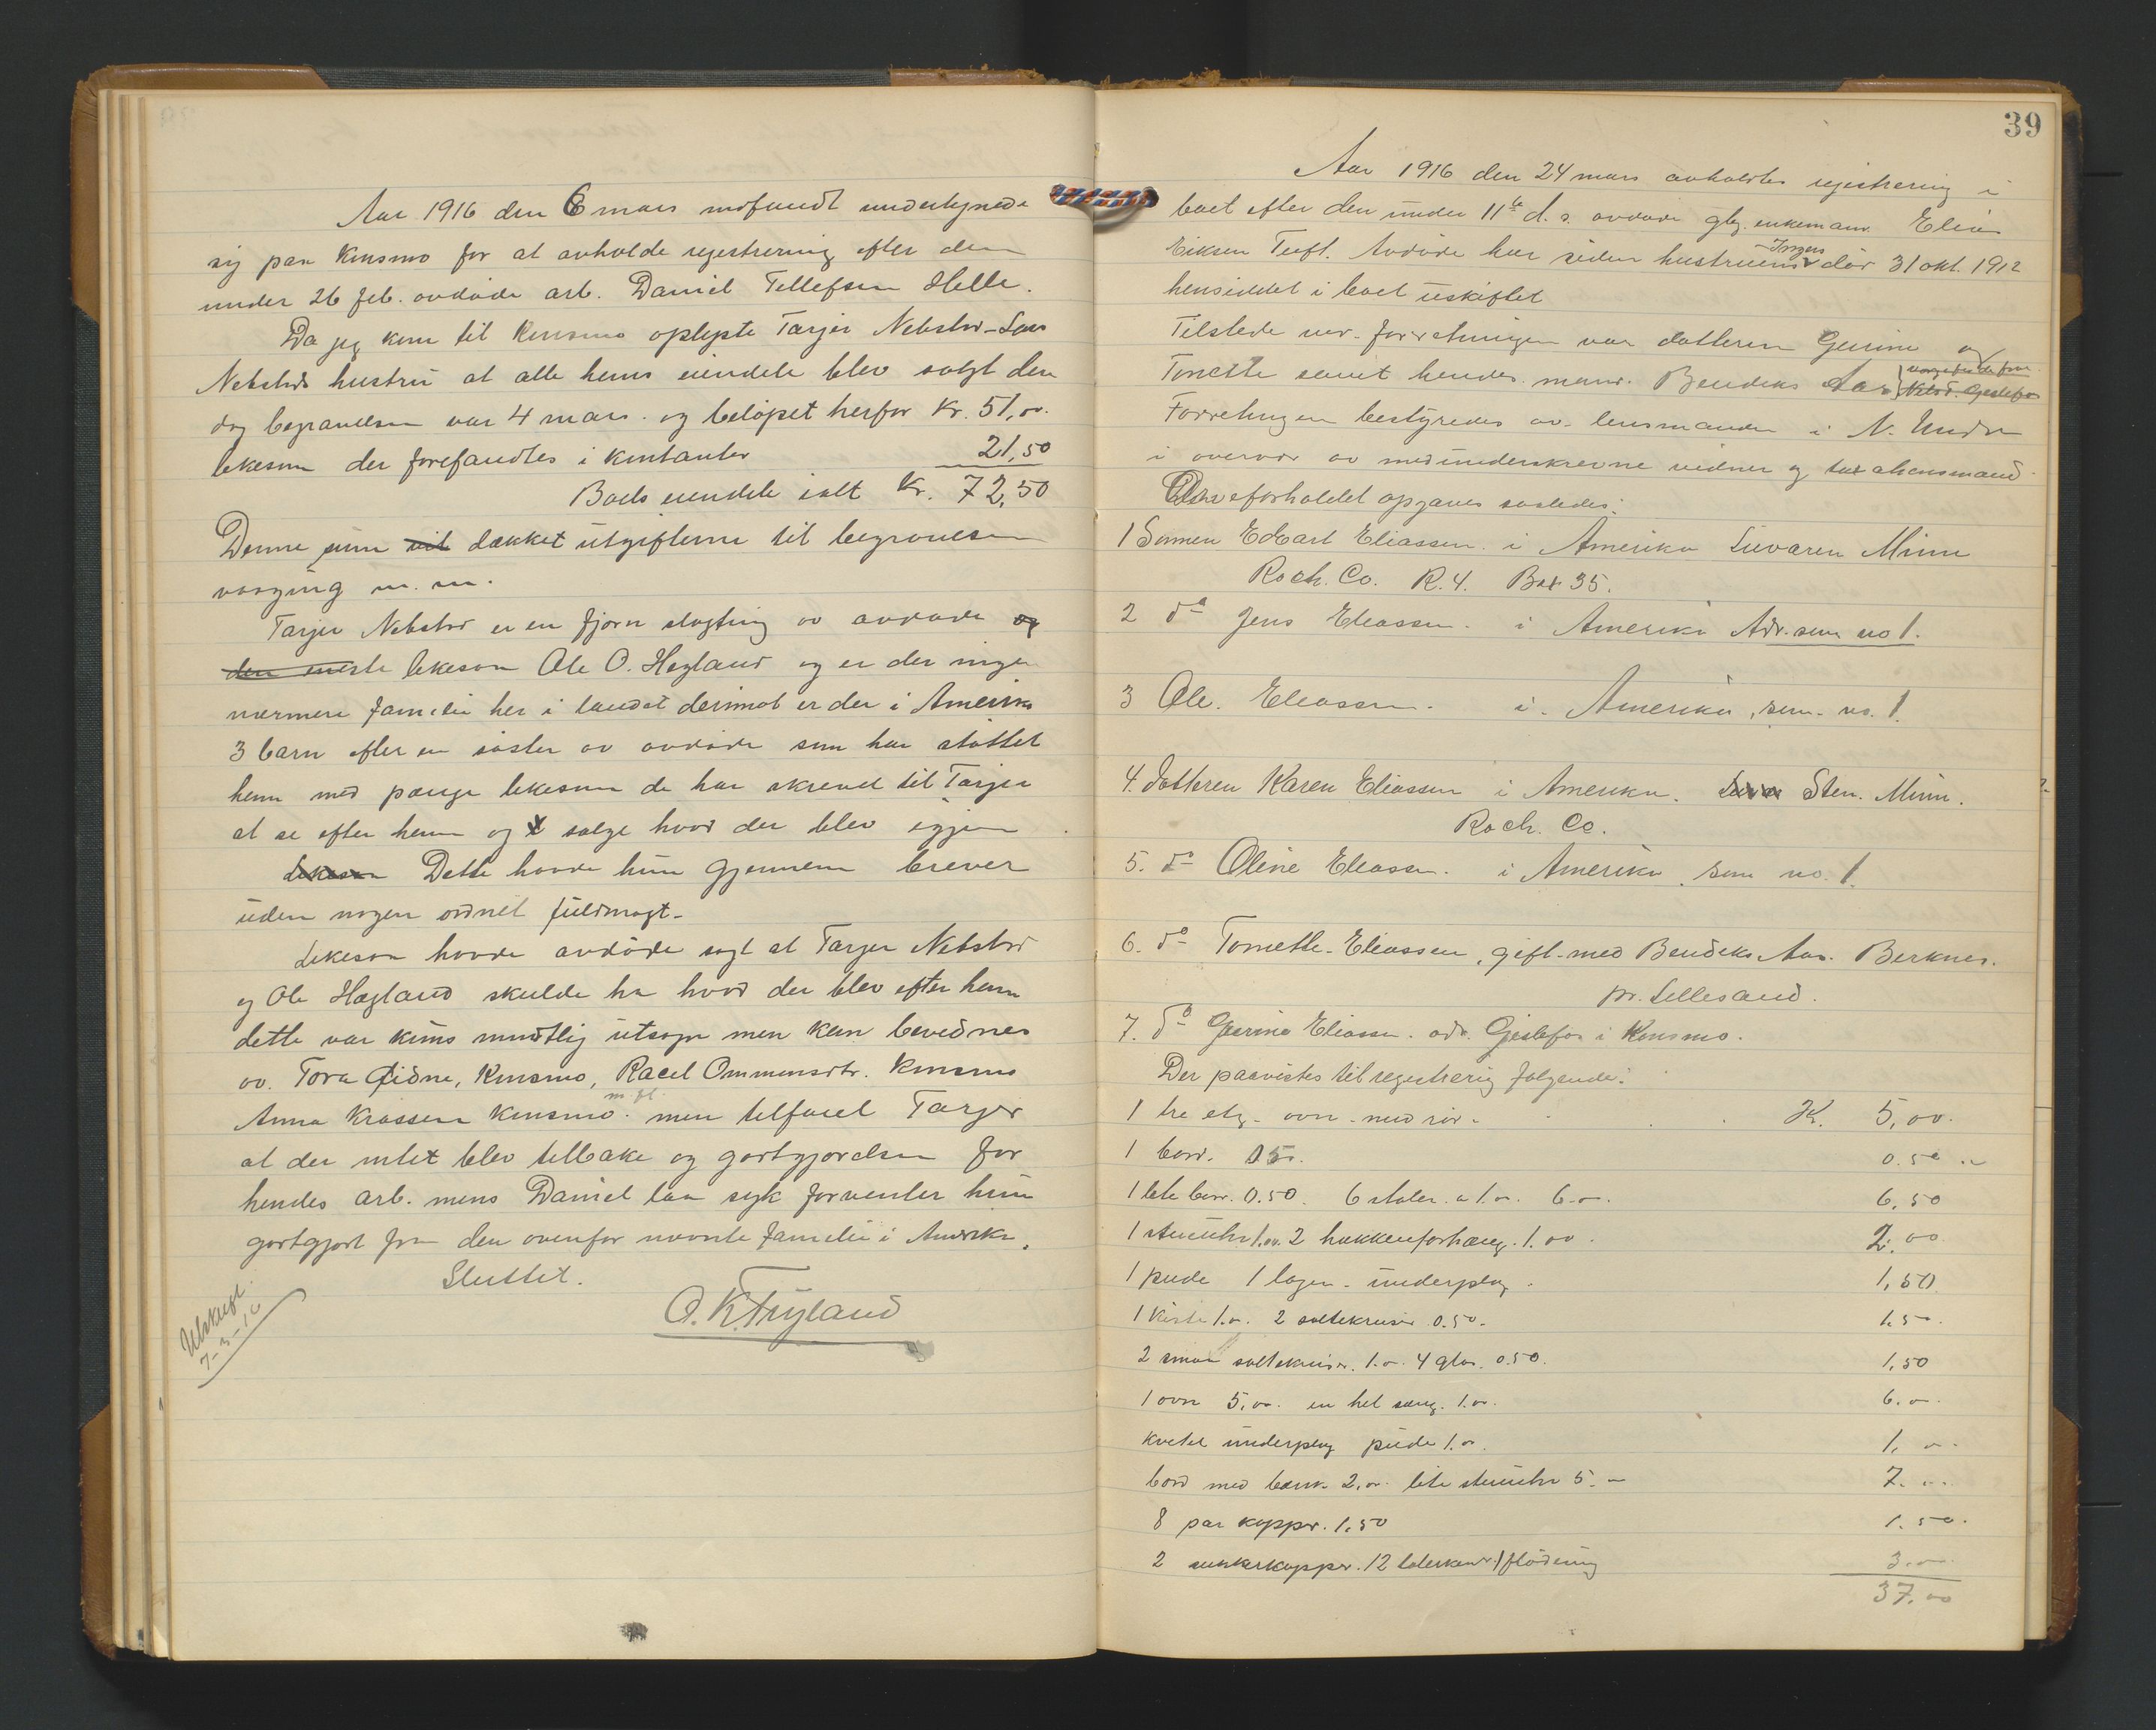 Aar 1916 den 6 mars indfandt undertegnede
sig paa Konsmo for at avholde registrering efter den
under 26 feb. avdøde arb. Daniel Tellefsen Helle.
Da jeg kom til Konsmo oplyste Tarjer Nebstad - Lars
Nebstads hustru at alle hans eiendele blev solgt den
dag begravelsen var 4 mars. og beløpet herfor Kr. 51,00.
likesom der forefandtes i kontanter 21,50
Boets eiendele ialt Kr. 72,50
Denne sum vil dækket utgifterne til begravelsen
m. m.
Tarjer Nebstad er en fjern slegtning av avdøde og
den likesom Ole O. Høgland og er der ingen
nærmere familie her i landet derimot er der i Amerika
3 barn efter en søster av avdøde som har støttet
ham med penge likesom de har skrevet til Tarjer
at se efter ham og sælge hvad der blev igjen
Likesom Dette havde hun gjennem brever
uden nogen ordnet fuldmagt.
Likesom havde avdøde sagt at Tarjer Nebstad
og Ole Høgland skulde ha hvad der blev efter ham
dette var kuns mundtlig utsagn men kan bevidnes
av. Tora Eidne, Konsmo, Racel Ommensdtr. Konsmo
Anna Krossen Konsmo m. fl. men tilføiel Tarjer
at der intet blev tilbake og godtgjørelsen for
hendes arb. mens Daniel laa syk forventer hun
godtgjort fra den ovenfor nævnte familie i Amerika.
Sluttet.
O. K. Tryland
Utskrift
7-3-16
39
Aar 1916 den 24 mars avholdtes registrering i
boet efter den under 11te d. s. avdøde enkemand Elias
Eiksen Tuft. Avdøde har siden hustruens Ingers død 31 okt. 1912
hensiddet i boet uskiftet
Tilstede ved forretningen var datteren Gurine og
Tonette samt hendes mand Bendiks Aas
Forretningen bestyredes av lensmanden i N. Undal
i overvær av medunderskrevne vidner og taxationsmænd.
Arveforholdet opgaves saaledes:
1 Sønnen Edvart Eliassen. i Amerika Minn
Roch. Co. R. 4. Box 35.
2 do Jens Eliassen. i Amerika Adr. som no 1.
3 Ole. Eliassen. i Amerika, som no. 1.
4. Datteren Karen Eliassen i Amerika. Sten. Minn.
Roch. Co.
5. do Oline Eliassen. i Amerika. som no. 1.
6. do Tonette Eliassen, gift med Bendiks Aas. Berknes.
pr. Lillesand.
7. do Gurine Eliassen. adr. Gjeslefos i Konsmo.
Der paavistes til registrering følgende:
1 tre etg. ovn med rør. K. 5,00.
1 bord. 0.50
1 lite bord. 0.50. 6 stoler. a 1.00. 6.00. 6,50
1 stueuhr 1.00. 2 1.00. 2,00
1 pude 1 lagen. underplag. 1,50
1 kiste 1.00. 2 saltekruser 0.50. 1.50.
2 smaa saltekruser. 1.00. 4 glas. 0.50. 1,50
1 ovn 5.00. en hel seng. 1.00. 6.00.
kvitel underplag pude 1.00. 1,00
bord med bænk 2.00. lite stueuhr 5.00 7.00
8 par kopper. 1.50 1.50.
2 sukkerkopper. 12 talerkener. 1 3.00
37.00